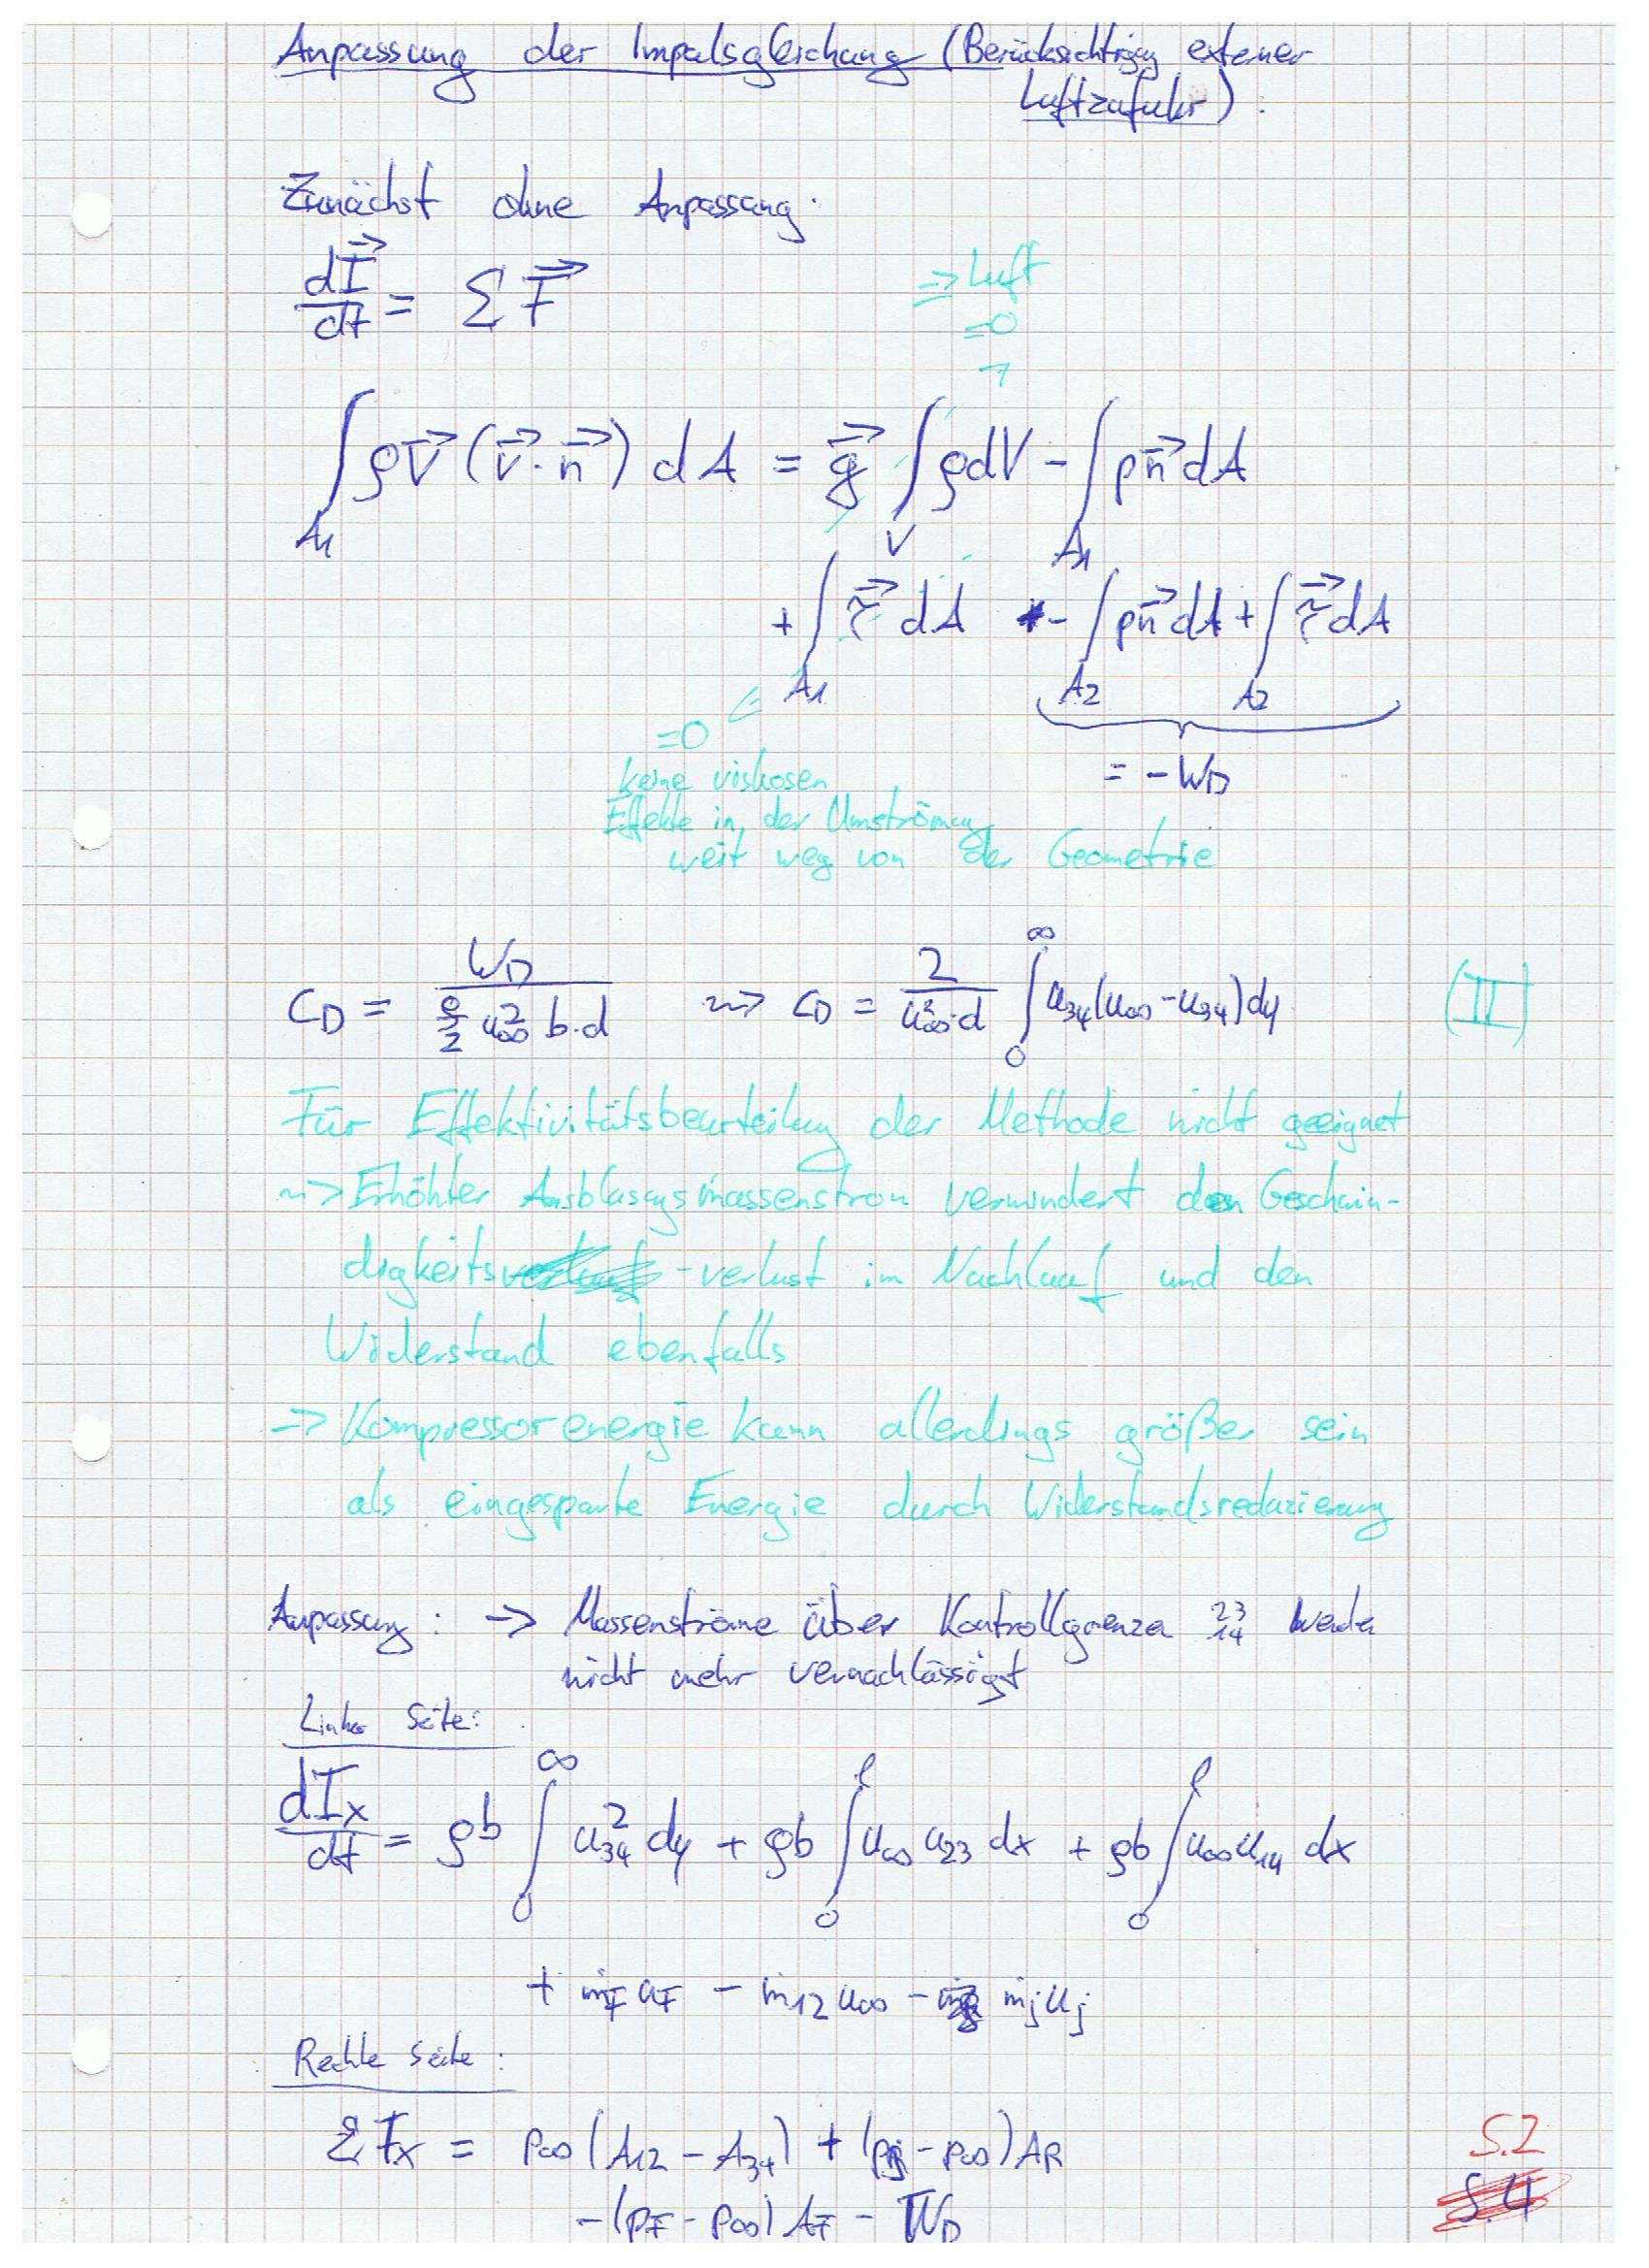 Anpassung der Impulsgleichung (Berücksichtigung externer
Luftzufuhr):
Zunächst ohne Anpassung:
dI⃗/dt = Σ F⃗
=> Luft
=0
∫_A1 ρv⃗ (v⃗·n⃗) dA = g⃗ ∫_V ρdV - ∫_A1 pn⃗dA
+ ∫_A1 τ⃗ dA - ∫_A2 pn⃗dA + ∫_A2 τ⃗dA
=0
= -W_D
keine viskosen
Effekte in der Umströmung
weit weg von der Geometrie
C_D = W_D / (ρ/2 u∞² b·d) ~> C_D = 2/(u∞²·d) ∫_0^∞ u34(u∞ - u34)dy (II)
Für Effektivitätsbeurteilung der Methode nicht geeignet
~> Erhöhter Ausblasungsmassenstrom vermindert den Geschwin-
digkeits-verlust im Nachlauf und den
Widerstand ebenfalls
=> Kompressorenergie kann allerdings größer sein
als eingesparte Energie durch Widerstandsreduzierung
Anpassung: -> Massenströme über Kontrollgrenzen 23 14 werden
nicht mehr vernachlässigt
Linke Seite:
dI_x/dt = ρb ∫_0^∞ u34² dy + ρb ∫_0^l u∞ u23 dx + ρb ∫_0^l u∞ u14 dx
+ ṁ_F u_F - ṁ12 u∞ - ṁj uj
Rechte Seite:
ΣF_x = p∞(A12 - A34) + (pj - p∞)A_R
-(p_F - p∞)A_F - W_D
S.2
S.4